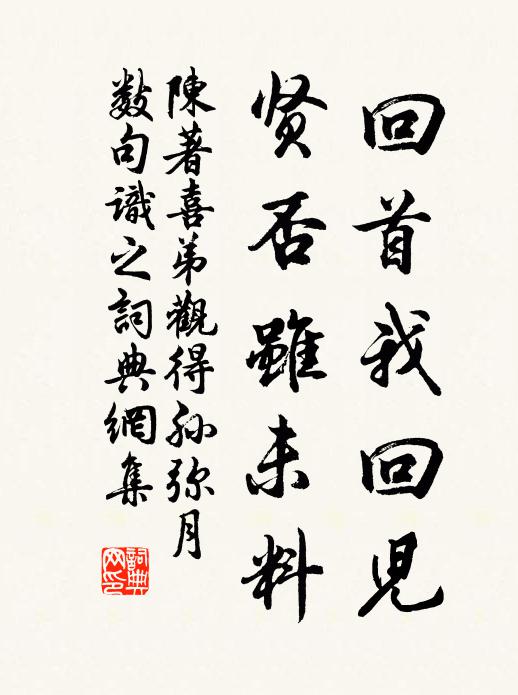 回首我回児
贤否雖未料
陳著喜弟觀得孙弥月
数句識之詞典網集
詞典网印